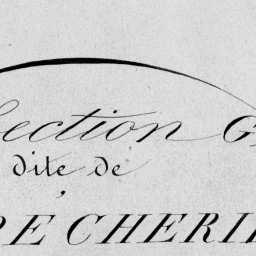 ection G
dite de
PE CHERI